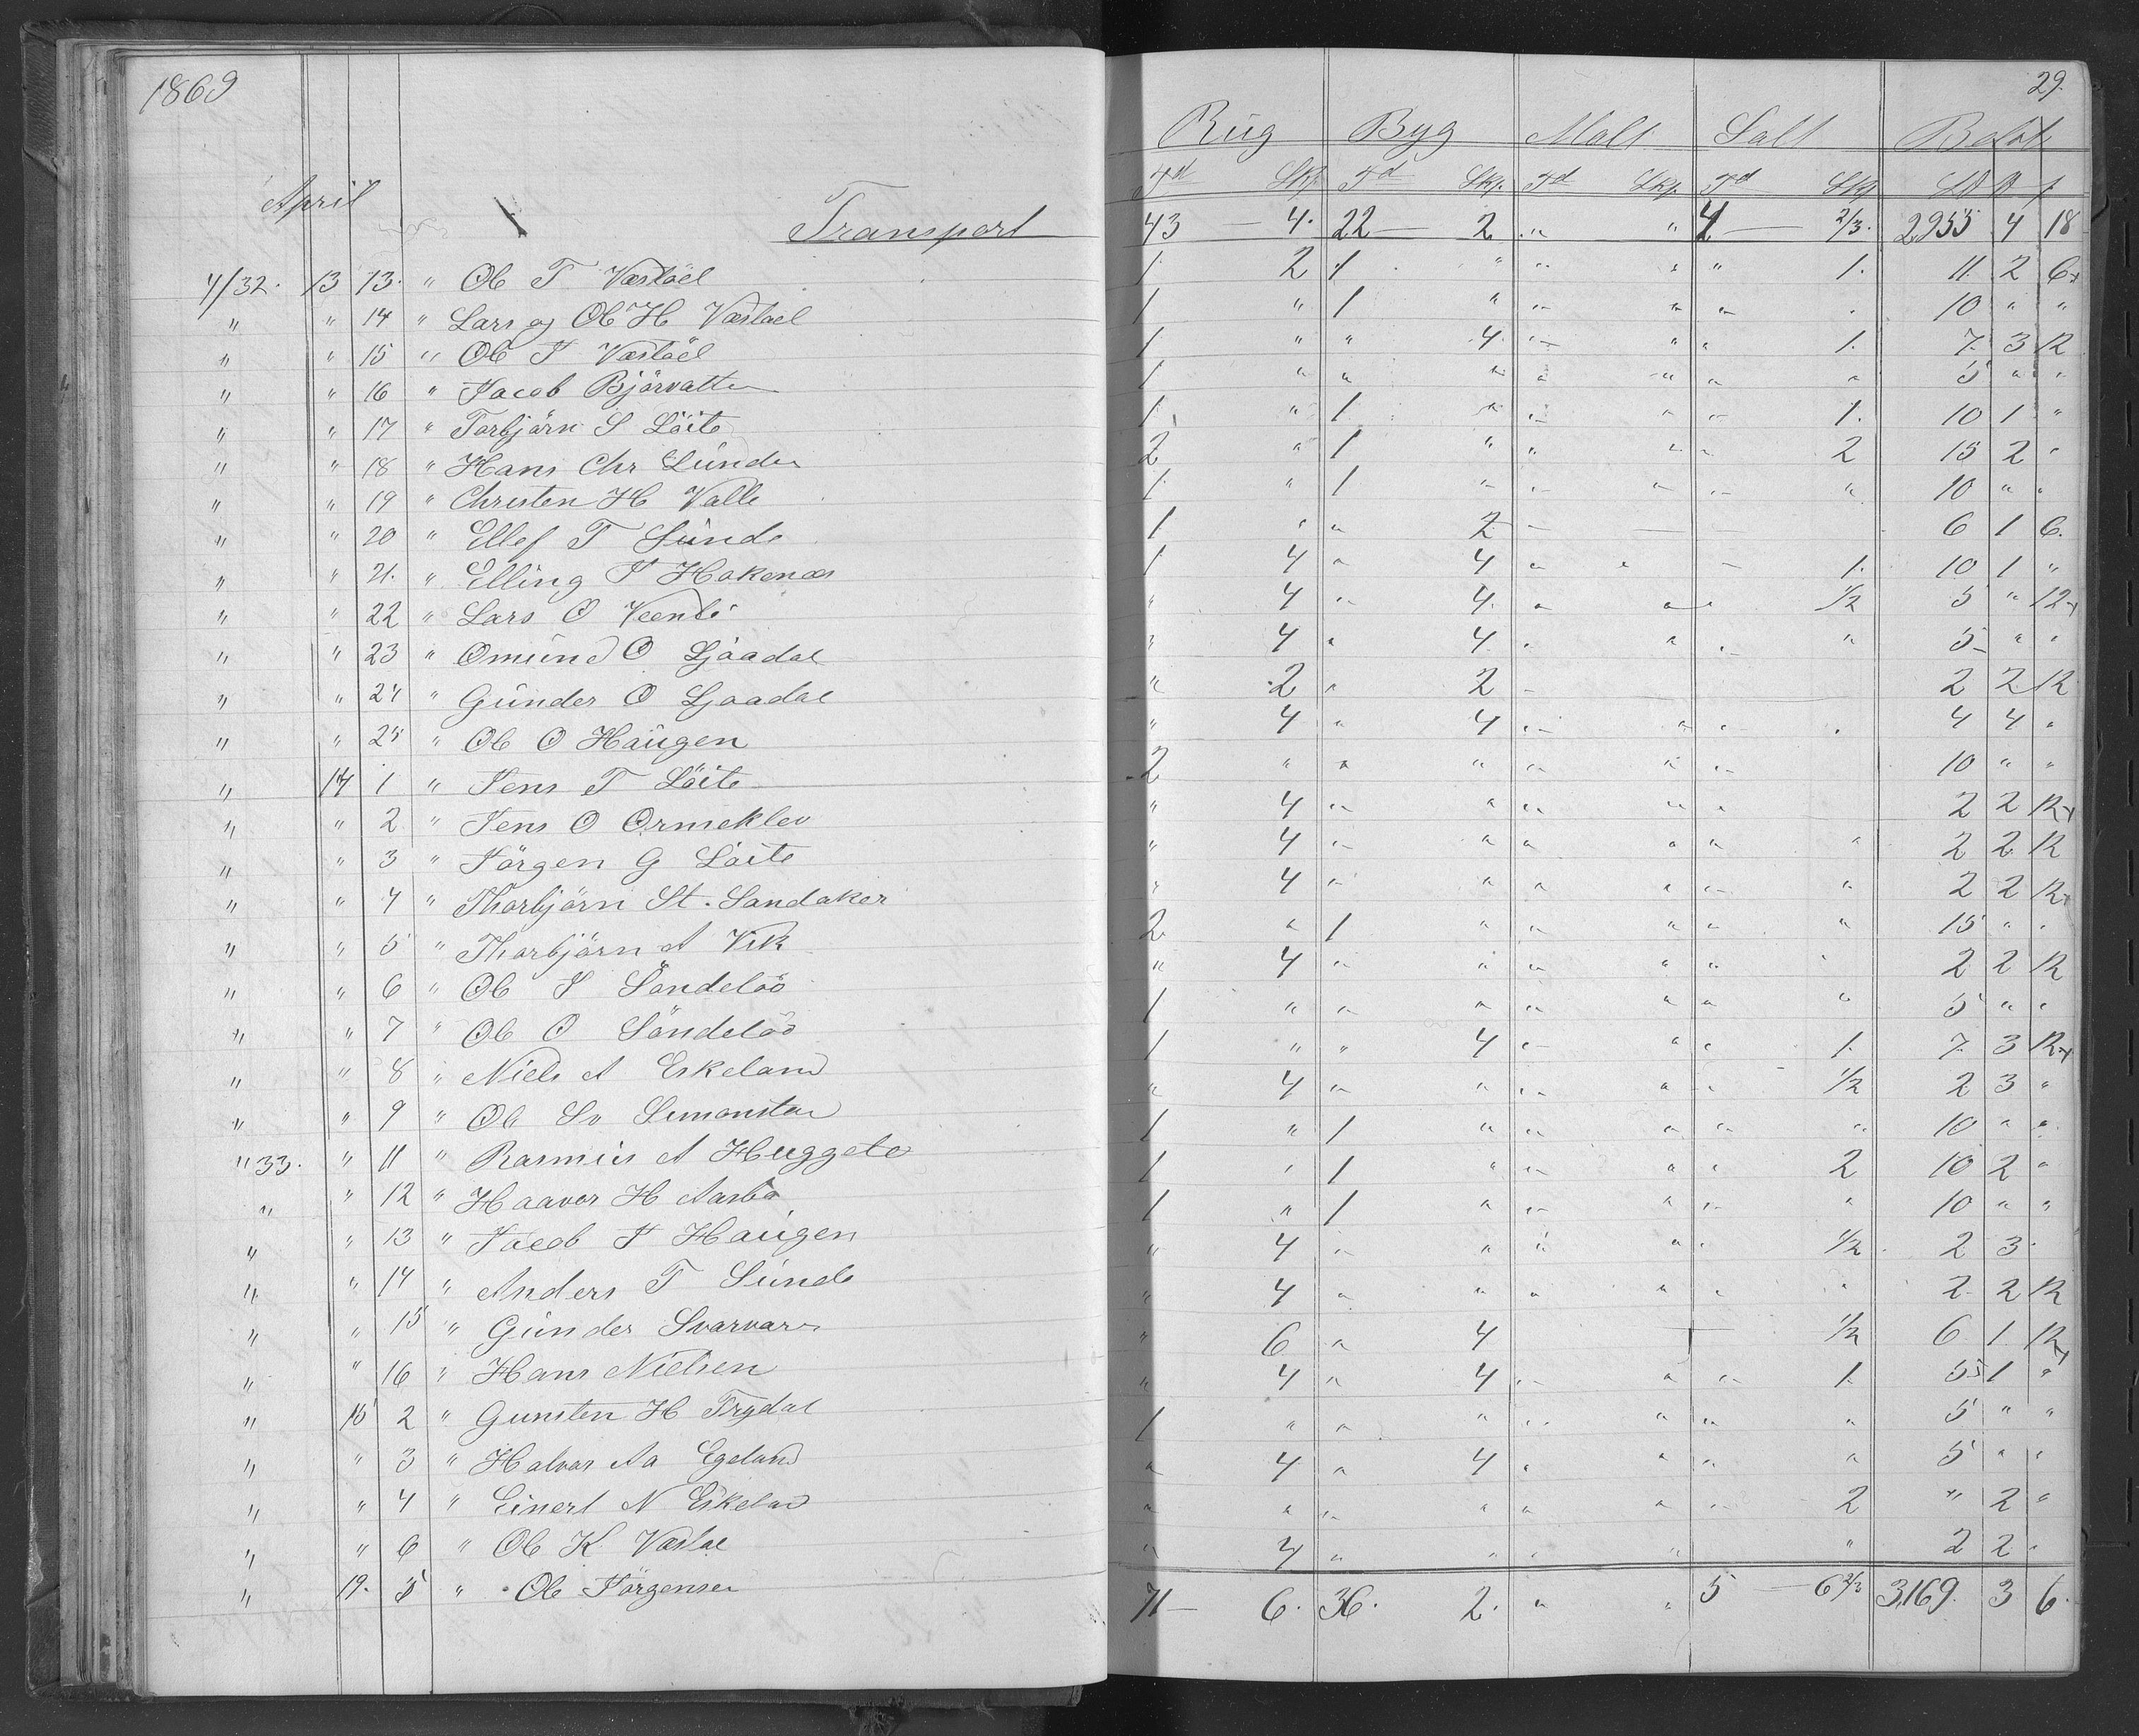 1869
29.
Rug Byg Malt Salt Beløb
Td Skp Td Skp. Td Skp. Td Skp
April Transport 43 — 4. 22 — 2 " " 4 — 2/3. 2955 4 18
4/32. 13 13. " Ole T Vastöel 1 2 1 " " " " 1. 11. 2 6
" " 14 " Lars og Ole H Vastöel 1 " 1 " " " " . 10 " "
" " 15 " Ole J Vastöel 1 " " 4. " " " 1. 7. 3 12
" " 16 " Jacob Bjôrvatten 1 " " " " " " " 5 " "
" " 17 " Torbjörn S Löite 1 " 1 " " " " 1. 10 1 "
" " 18 " Hans Chr Lunden 2 " 1 " " " " 2 15 2 "
" " 19 " Christen H Valle 1 " 1 " " " " " 10 " "
" " 20 " Ellef T Sunde 1 " " 2 — 6 1 6.
" " 21. " Elling J Hakenæs 1 4 " 4 " " " 1. 10 1 "
" " 22 " Lars O 4 " 4. " " " 1/2 5 " 12
" " 23 " Omund O Ljaadal " 4 " 4. " " " " 5 " "
" " 24 " Gunder O Ljaadal " 2 " 2 — 2 2 12
" " 25 " Ole O Haugen " 4 " 4 " " " . 4 4 "
" 14 1 " Jens T Löite 2 " " " " " " 10 " "
" " 2 " Jens O Ormeklev " 4 " " " " " 2 2 12
" " 3 " Jörgen G Löite " 4 " " " " " " 2 2 12
" " 4 " Thorbjörn St. Sandaker " 4 " " " " " " 2 2 12
" " 5 " Thorbjörn A Vik 2 " 1 " " " " " 15 " "
" " 6 " Ole J Söndelöö " 4 " " " " " " 2 2 12
" " 7 " Ole O Söndelöö 1 " " " " " " " 5 " "
" " 8 " Niels A Eskeland 1 " " 4 " " " 1. 7. 3 12
" " 9 " Ole Sv Simonstad " 4 " " " " " 1/2 2 3 "
" 33. " 11 " Rasmus A Huggeto 1 " 1 " " " " " 10 " "
" " 12 " Haaver H Aasbö 1 " 1 " " " " 2 10 2 "
" " 13 " Jacob J Haugen 1 " 1 " " " " " 10 " "
" " 14 " Anders T Sunde " 4 " " " " " 1/2 2 3 "
" " 15 " Gunder Svarvar " 4 " " " " " " 2 2 12
" " 16 " Hans Nielsen " 6 " 4 1/2 6 1 12
" 15 2 " Gunsten H Trydal " 4 " 4 " " " 1 5 1 "
" " 3 " Halvor Aa Egeland 1 " " " " " " " 5 " "
" " 4 " Einert N Eskeland " 4 " 4 " " " " 5 " "
" " 6 " Ole K Vastöl " " " " " " " 2 " 2 "
" 19. 5 " Ole Jörgensen " 4 " " " " " 2 2 "
71 — 6. 36. 2. " " 5 — 6 2/3 3169. 3 6.